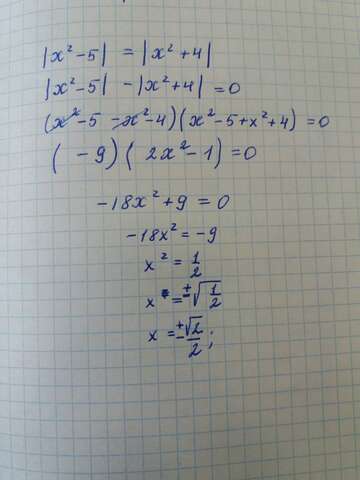 |x²-5| = |x²+4|
|x²-5| -|x²+4| = 0
(x²-5 -x²-4)(x²-5+x²+4) = 0
( -9)( 2x²-1)=0
-18x²+9 = 0
-18x² = -9
x² = 1/2
x = ±√1/2
x = ±√2/2;